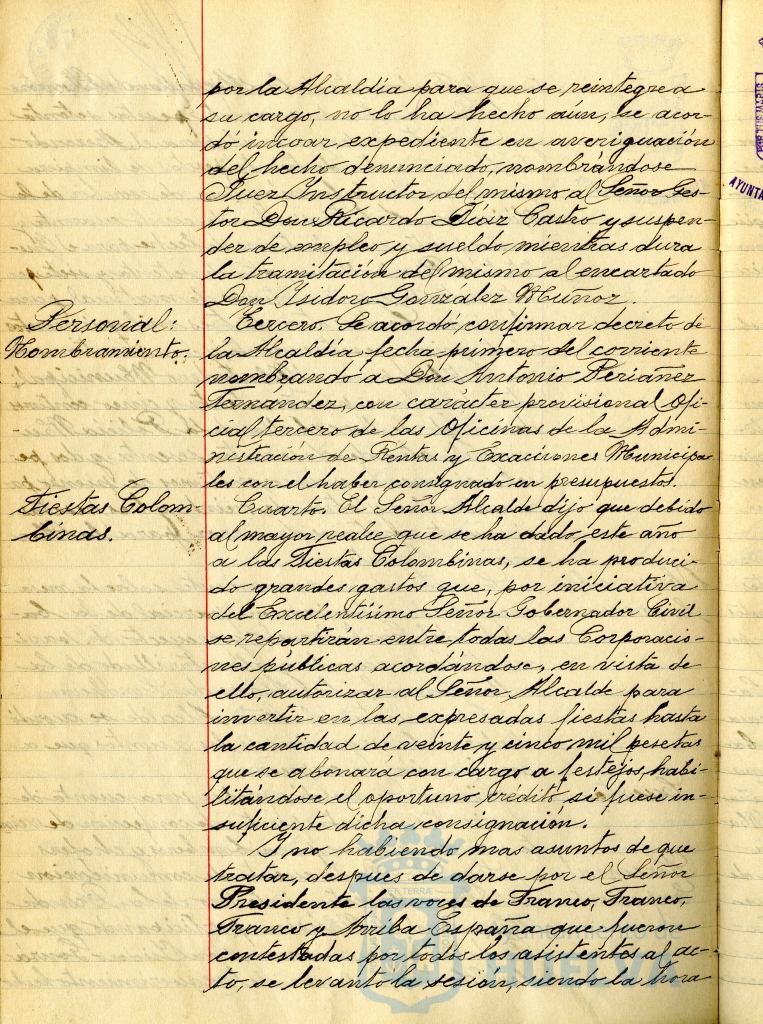 por la Alcaldía para que se reintegre a
su cargo, no lo ha hecho aún, se acor-
dó incoar expediente en averiguación
del hecho denunciado, nombrándose
Juez Instructor del mismo al Señor Ges-
tor Don Ricardo Díaz Castro y suspen-
der de empleo y sueldo mientras dura
la tramitación del mismo al encartado
Don Isidoro González Muñoz.
Personal:
Nombramiento.
Tercero. Se acordó, confirmar decreto de
la Alcaldía fecha primero del corriente
nombrando a Don Antonio Periáñez
Fernandez, con carácter provisional Ofi-
cial tercero de las Oficinas de la Admi-
nistración de Rentas y Exacciones Municipa-
les con el haber consignado en presupuesto.
Fiestas Colom-
binas.
Cuarto. El Señor Alcalde dijo que debido
al mayor realce que se ha dado este año
a las Fiestas Colombinas, se ha produci-
do grandes gastos que, por iniciativa
del Excelentísimo Señor Gobernador Civil
se repartirán entre todas las Corporacio-
nes públicas acordándose, en vista de
ello, autorizar al Señor Alcalde para
invertir en las expresadas fiestas hasta
la cantidad de veinte y cinco mil pesetas
que se abonará con cargo a festejos, habi-
litándose el oportuno crédito si fuese in-
suficiente dicha consignación.
Y no habiendo mas asuntos de que
tratar, despues de darse por el Señor
Presidente las voces de Franco, Franco,
Franco y Arriba España que fueron
contestadas por todos los asistentes al ac-
to, se levantó la sesión, siendo la hora